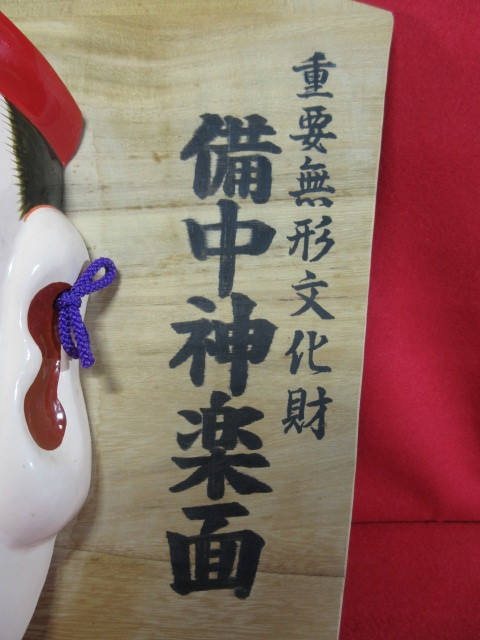 重要無形文化財
備中神楽面